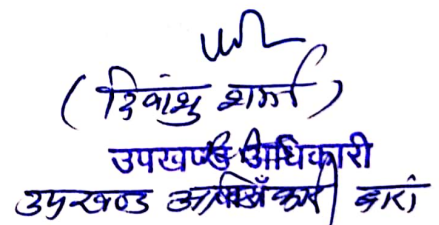 (दिवांशु शर्मा)
उपखण्ड अधिकारी
उपखण्ड अधिकारी बारां